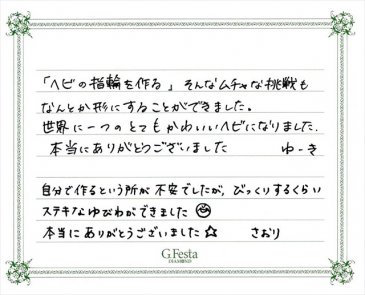 「ヘビの指輪を作る」そんなムチャな挑戦も
なんとか形にすることができました。
世界に一つのとてもかわいいヘビになりました.
本当にありがとうございました ゆーき
自分で作るという所が不安でしたが、びっくりするくらい
ステキなゆびわができました
本当にありがとうございました☆ さおり
G.Festa
DIAMOND